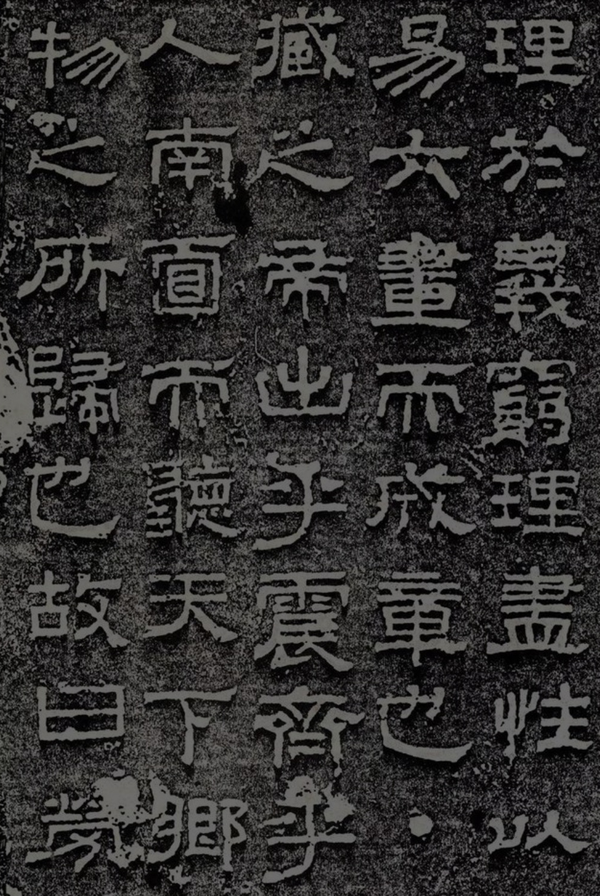 理於義窮理盡性以
易六畫而成章也·
藏之帝出乎震齊乎
人南面而聽天下鄉
物之所歸也故曰勞